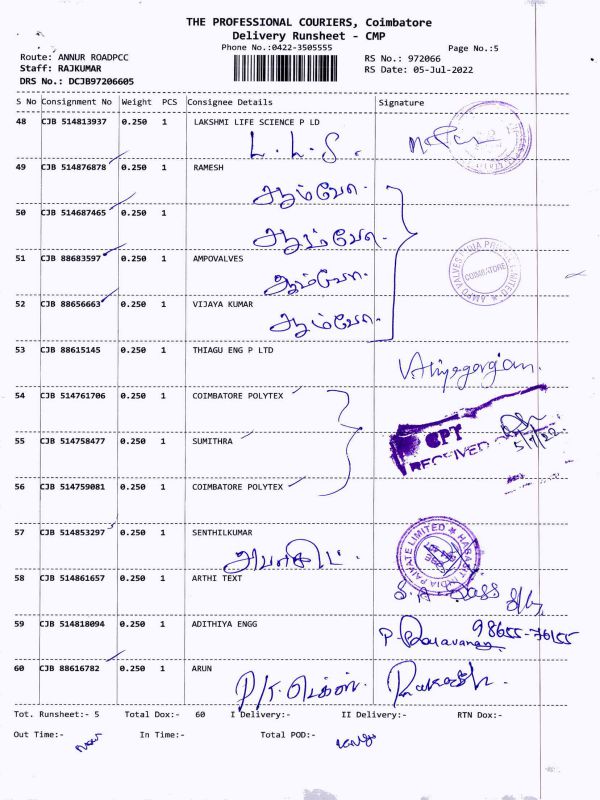 THE PROFESSIONAL COURIERS, Coimbatore
Delivery Runsheet - CMP
Phone No.:0422-3505555
Page No.:5
Route: ANNUR ROADPCC
RS No.: 972066
Staff: RAJKUMAR
RS Date: 05-Jul-2022
DRS No.: DCJB97206605
S No Consignment No Weight PCS Consignee Details Signature
48 CJB 514813937 0.250 1 LAKSHMI LIFE SCIENCE P LD
L. L. S.
49 CJB 514876878 0.250 1 RAMESH
ஆம்வோ.
50 CJB 514687465 0.250 1
ஆம்வோ.
51 CJB 88683597 0.250 1 AMPOVALVES
ஆம்வோ.
AMPO VALVES INDIA PRIVATE LIMITED
COIMBATORE
52 CJB 88656663 0.250 1 VIJAYA KUMAR
ஆம்வோ.
53 CJB 88615145 0.250 1 THIAGU ENG P LTD
54 CJB 514761706 0.250 1 COIMBATORE POLYTEX
55 CJB 514758477 0.250 1 SUMITHRA
CPT
RECEIVED
5/7/22
56 CJB 514759081 0.250 1 COIMBATORE POLYTEX
57 CJB 514853297 0.250 1 SENTHILKUMAR
HABASIT INDIA PRIVATE LIMITED
58 CJB 514861657 0.250 1 ARTHI TEXT
59 CJB 514818094 0.250 1 ADITHIYA ENGG
98655-76155
60 CJB 88616782 0.250 1 ARUN
Rakesh.
Tot. Runsheet:- 5 Total Dox:- 60 I Delivery:- II Delivery:- RTN Dox:-
Out Time:- In Time:- Total POD:-